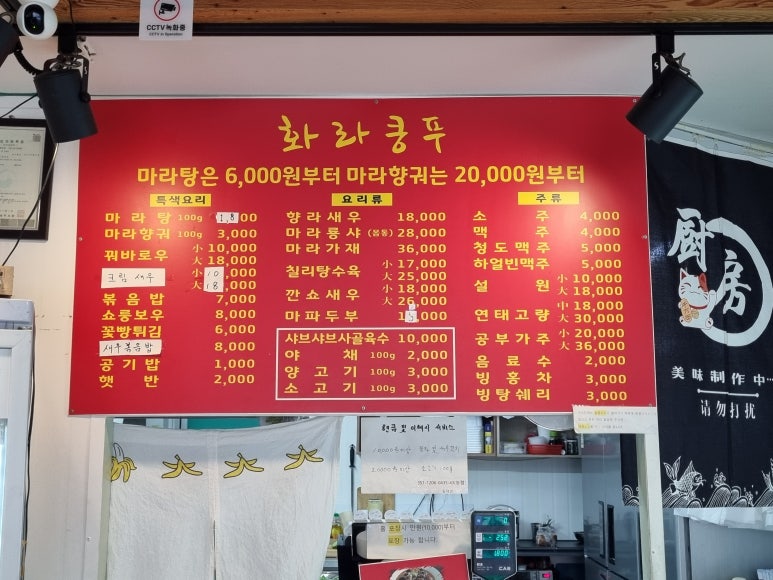 CCTV 녹화중
CCTV in Operation
화라쿵푸
마라탕은 6,000원부터 마라향궈는 20,000원부터
특색요리
마라탕 100g 1,800
마라향궈 100g 3,000
꿔바로우 小 10,000
大 18,000
크림 새우 小 10
大 18
볶음밥 7,000
쇼룽보우 8,000
꽃빵튀김 6,000
새우볶음밥 8,000
공기밥 1,000
햇반 2,000
요리류
향라새우 18,000
마라룽샤(봄통) 28,000
마라가재 36,000
칠리탕수육 小 17,000
大 25,000
깐쇼새우 小 18,000
大 26,000
마파두부 15,000
샤브샤브사골육수 10,000
야채 100g 2,000
양고기 100g 3,000
소고기 100g 3,000
주류
소주 4,000
맥주 4,000
청도맥주 5,000
하얼빈맥주 5,000
설원 小 10,000
中 18,000
연태고량 中 18,000
大 30,000
공부가주 小 20,000
大 36,000
음료수 2,000
빙홍차 3,000
빙탕쉐리 3,000
厨房
美味制作中…
请勿打扰
현금 및 이체시 서비스
홀 포장시 만원(10,000)부터
포장 가능 합니다.
CAS